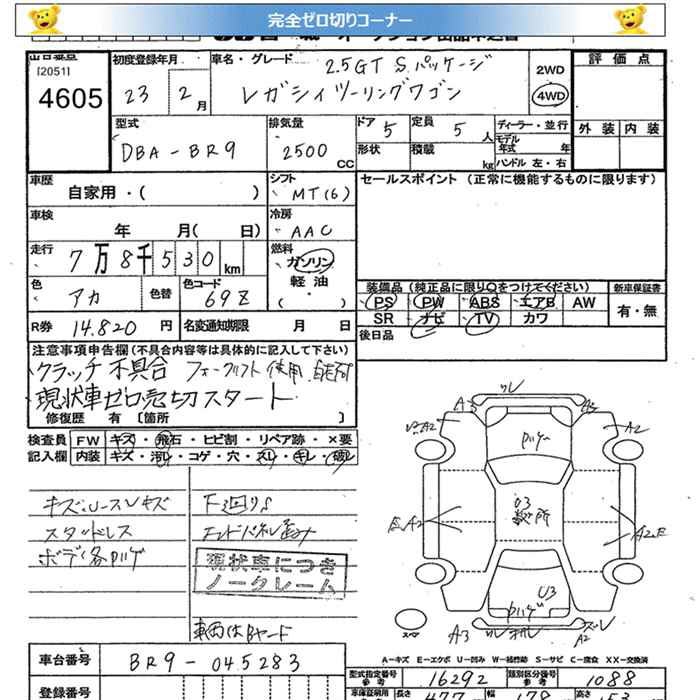 完全ゼロ切りコーナー
[2051]
4605
初度登録年月
23 2月
車名・グレード
2.5GT Sパッケージ
レガシィツーリングワゴン
2WD
4WD
評価点
外装 内装
型式
DBA-BR9
排気量
2500 CC
ドア 5
定員 5人
形状
積載 kg
ディーラー・並行
モデル年式 年
ハンドル 左・右
車歴
自家用・( )
シフト
MT(6)
セールスポイント (正常に機能するものに限ります)
車検
年 月( 日)
冷房
AAC
走行
7万8千530km
燃料
ガソリン
軽油
・( )
色
アカ
色替
色コード
69Z
装備品 (純正品に限り○をつけてください)
新車保証書
PS PW ABS エアB AW
SR ナビ TV カワ
有・無
R券 14.820円
名変通知期限 月 日
後日品
注意事項申告欄 (不具合内容等は具体的に記入して下さい)
クラッチ不具合 フォークリフト使用
現状車ゼロ売切スタート
修復歴 有 [箇所 ]
検査員記入欄
FW キズ・飛石・ヒビ割・リペア跡・×要
内装 キズ・汚レ・コゲ・穴・スレ・キレ・破レ
スタッドレス
ボデ各ハゲ
下廻りS
現状車につき
ノークレーム
車両はBヤード
A3
A2
ハゲ
U3
A2E
スペア
A3
A2
A=キズ E=エクボ U=凹み W=補修跡 S=サビ C=腐食 XX=交換済
車台番号
BR9-045283
登録番号
型式指定番号 参考 16292
類別区分番号 参考 1088
車体証明用 参考
長さ 477 cm
幅 178